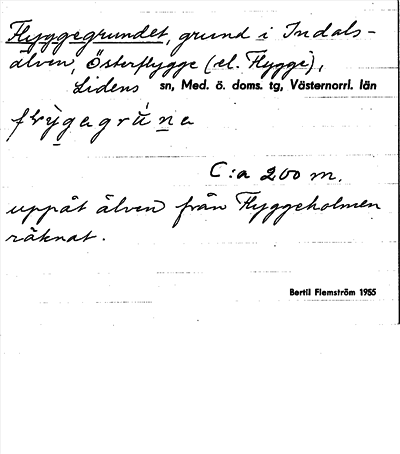 Flyggegrundet, grund i Indals-
älven, Österflygge (el. Flygge),
Lidens sn, Med. ö. doms. tg, Västernorrl. län
C:a 200 m.
uppåt älven från Flyggeholmen
räknat.
Bertil Flemström 1955